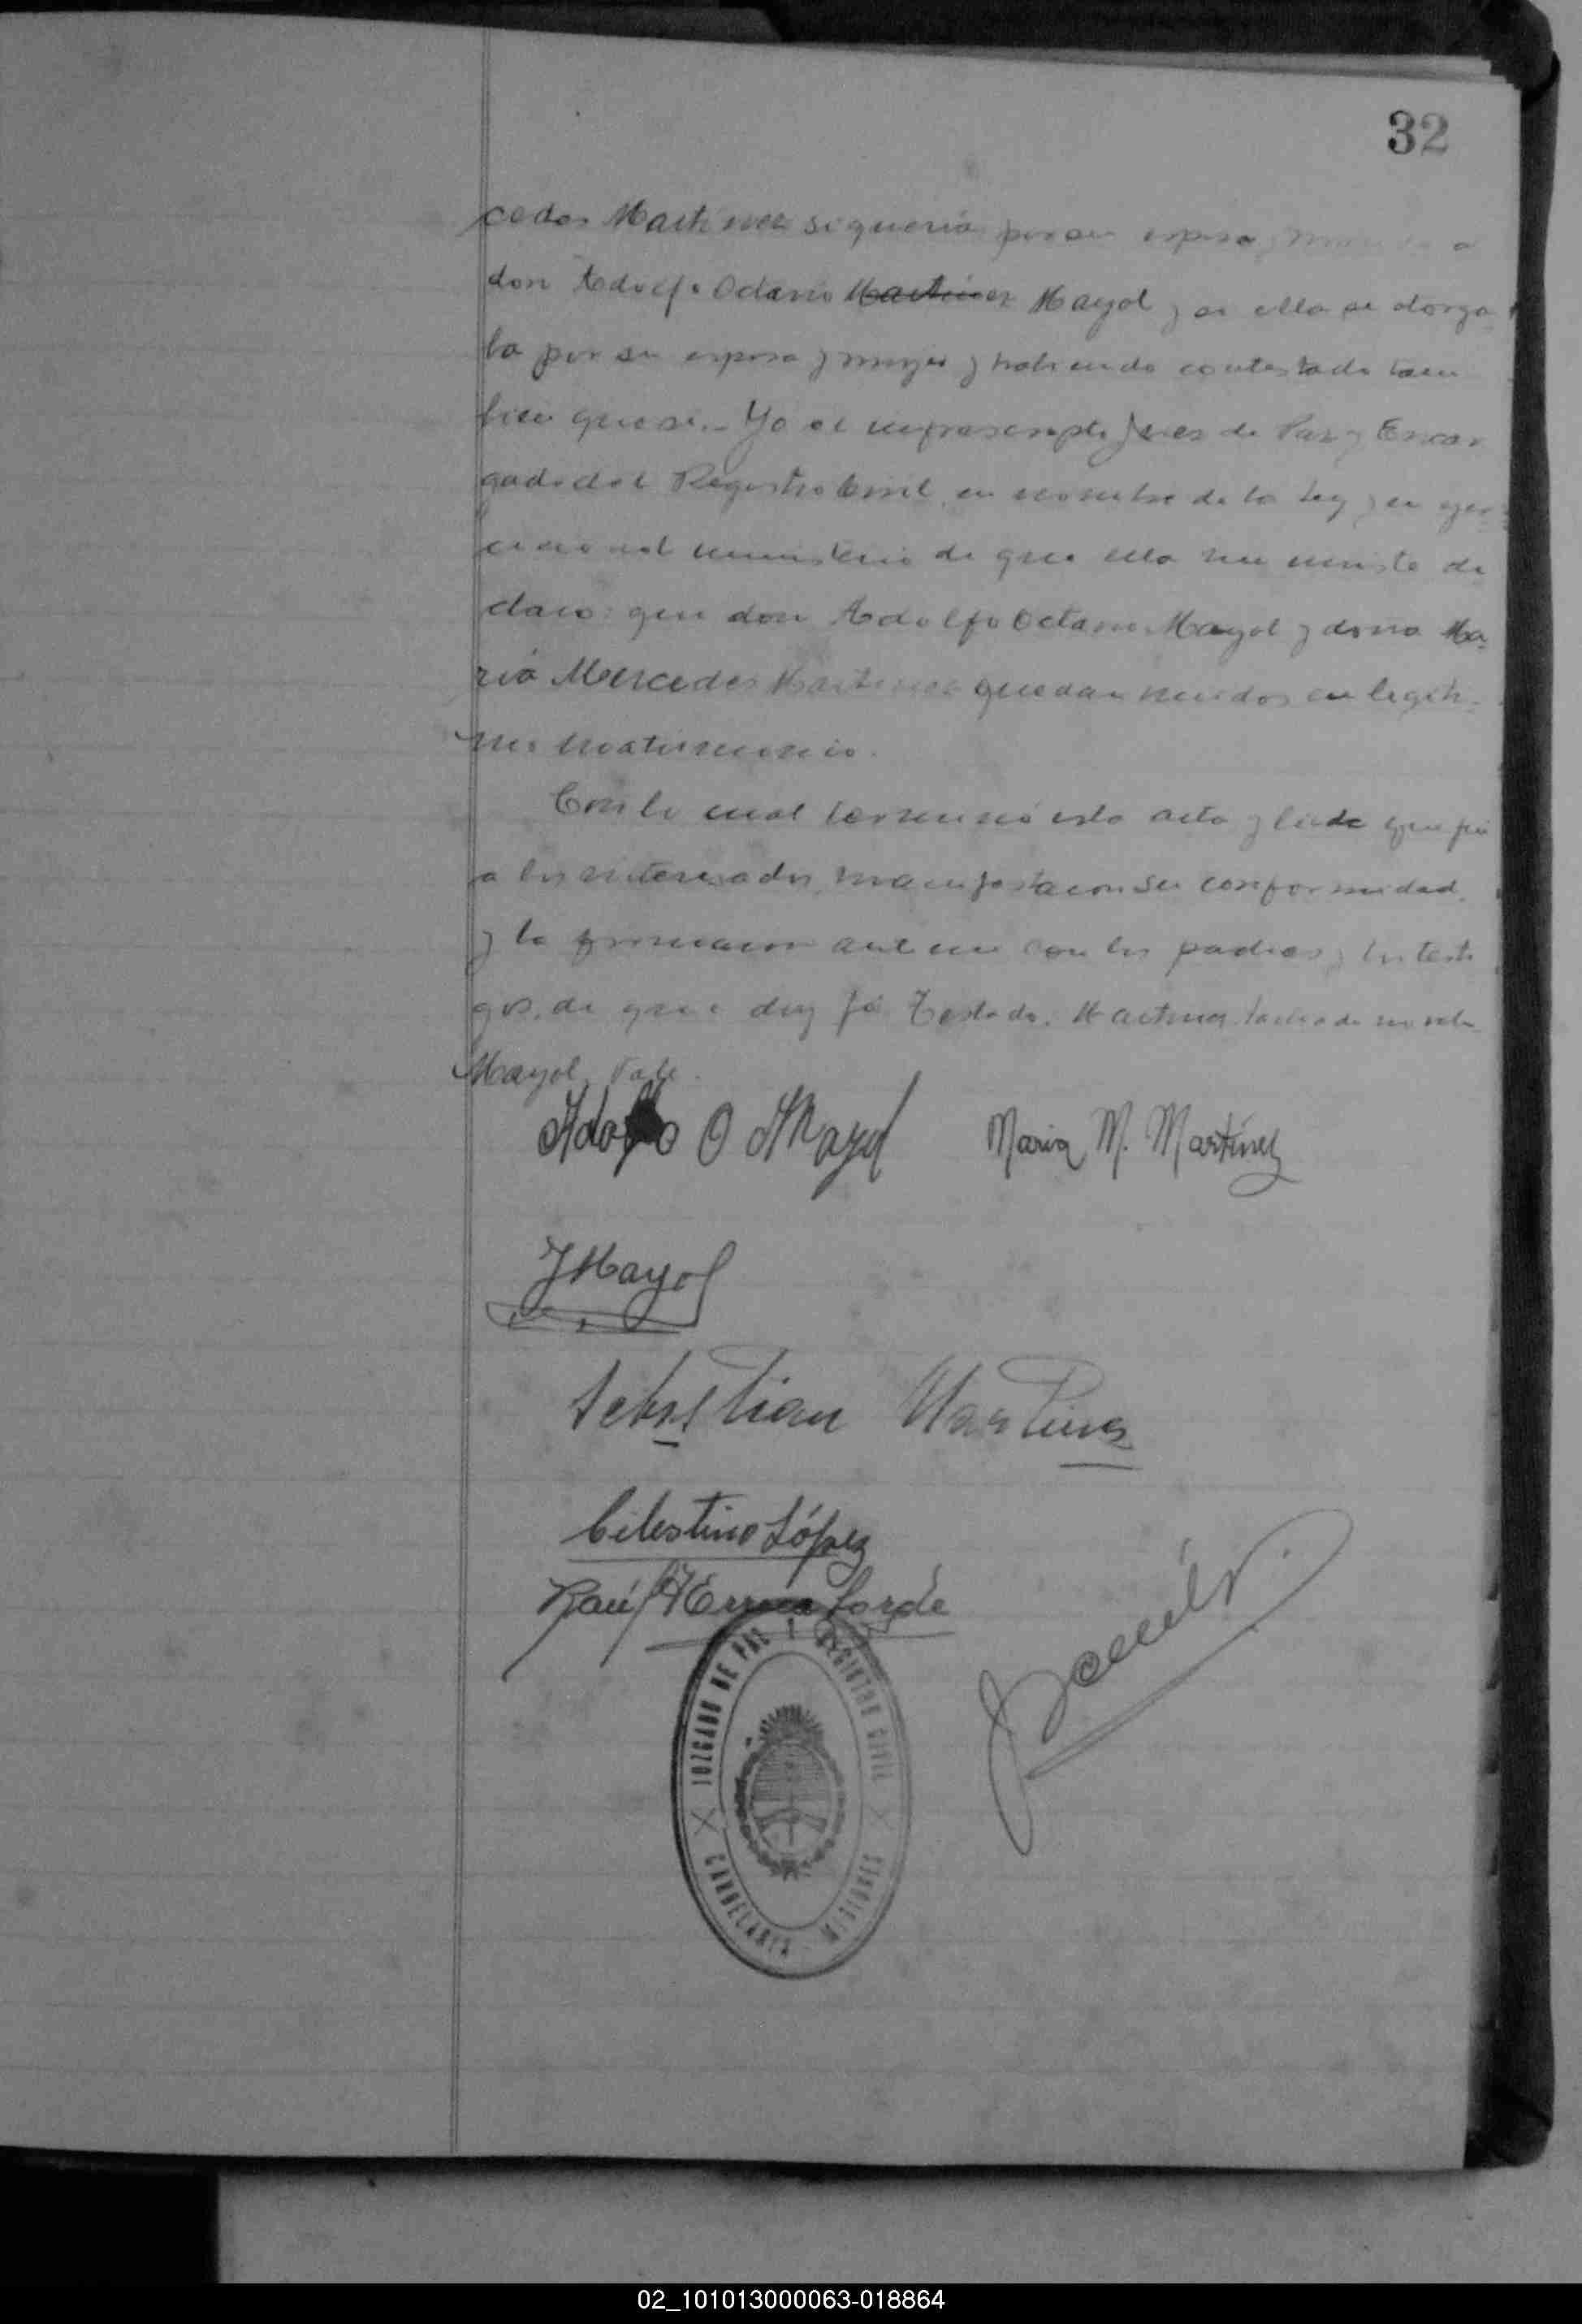 32
cedes Martinez si queria por su esposo y marido a
don Adolfo Octavio Martinez Mayol y si ella se otorga
ba por su esposa y mujer y habiendo contestado tam
bien que si.- Yo el infrascripto Juez de Paz y Encar
gado del Registro Civil, en nombre de la Ley y en ejer
cicio del ministerio de que ella me inviste de
claro: que don Adolfo Octavio Mayol y doña Ma
ria Mercedes Martinez quedan unidos en legiti-
mo matrimonio.
Con lo cual terminó este acto y leida que fué
a los interesados, manifestaron su conformidad,
y la firmaron ante mi con los padres y los testi
gos, de que doy fé. Testado: Martinez
Mayol. Vale.
Adolfo O Mayol Maria M. Martínez
J Mayol
Sebastian Martinez
Celestino López
Raúl
JUZGADO DE PAZ Y REGISTRO CIVIL
CANDELARIA MISIONES
02_101013000063-018864